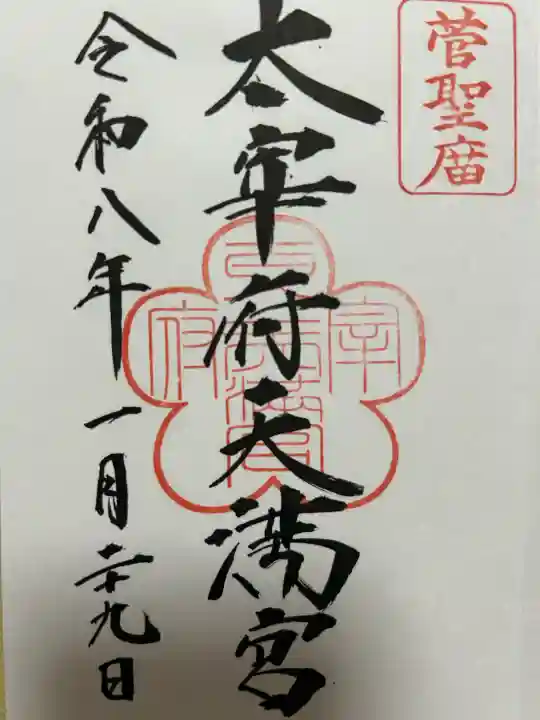 菅聖庿
太宰府天満宮
令和八年一月二十九日